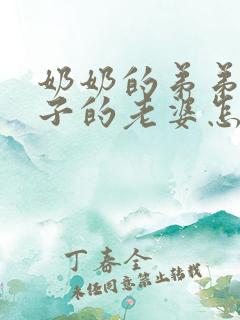 奶奶的弟弟
子的老婆怎
丁春全
未经同意禁止转载